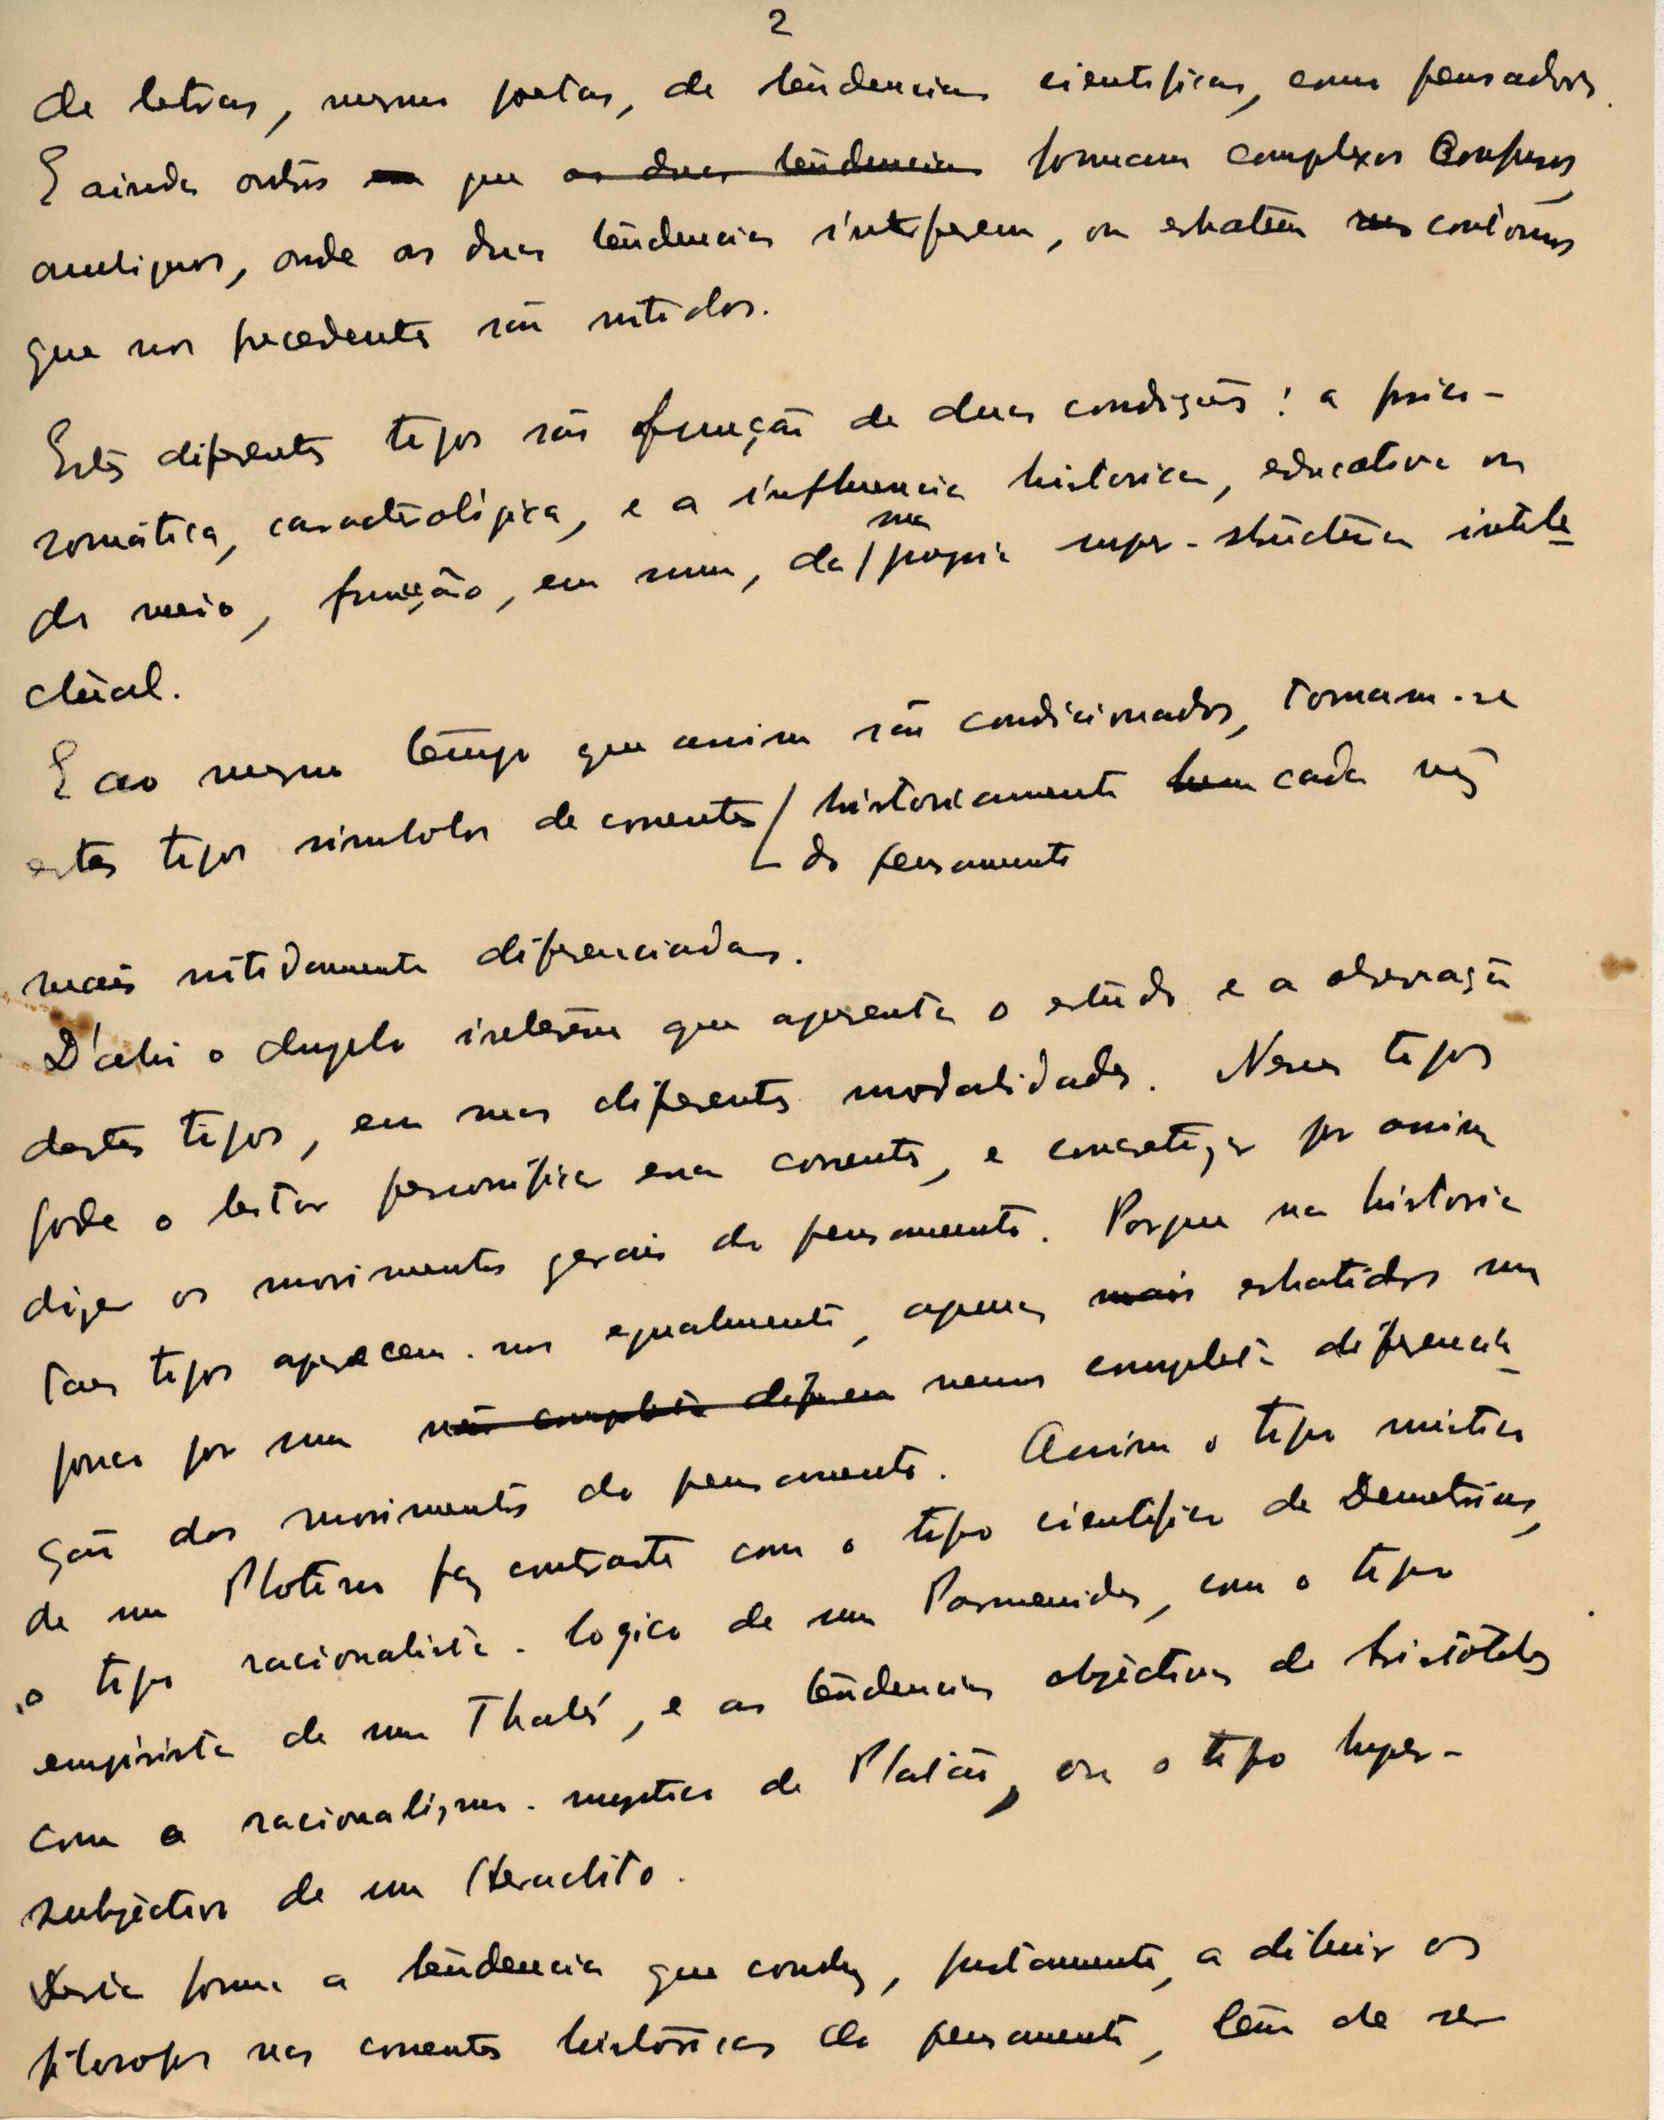 2
de letras, mesmo poetas, de tendencias cientificas, como pensadores.
E ainda outros em que as duas tendencias formam complexos confusos,
ambiguos, onde as duas tendencias interferem, ou esbatem nos contornos
que nos precedentes são nitidos.
Estes diferentes tipos são função de duas condições: a psico-
somática, caracterológica, e a influencia historica, educativa ou
do meio, função, em suma, da sua propria super-structura intele
ctual.
E ao mesmo tempo que assim são condicionados, tornam-se
estes tipos simbolos de correntes / historicamente bem cada vez
do pensamento
mais nitidamente diferenciadas.
D'ahi o duplo interesse que apresenta o estudo e a observação
destes tipos, em suas diferentes modalidades. Nesses tipos
pode o leitor personificar essa corrente, e concretizar por assim
dizer os movimentos gerais do pensamento. Porque na historia
taes tipos aparecem-nos egualmente, apenas mais esbatidos um
pouco por uma não completa diferen menos completa diferencia
ção dos movimentos do pensamento. Assim o tipo mistico
de um Plotino faz contraste com o tipo cientifico de Demetrius,
o tipo racionalista-logico de um Parmenides, com o tipo
empirista de um Thalés, e as tendencias objectivas de Aristóteles
com o racionalismo-mystico de Platão, ou o tipo hyper-
subjectivo de um Heraclito.
Desta forma a tendencia que conduz, justamente, a diluir os
filosofos nas correntes históricas do pensamento, tem de ser